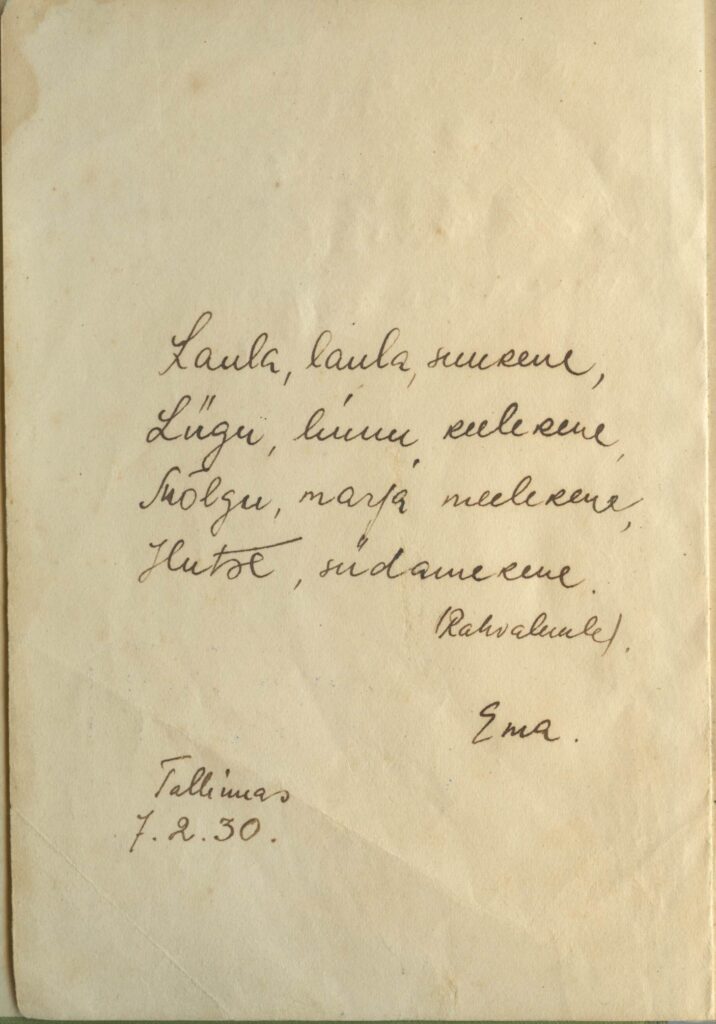 Laula, laula, suukene,
Liigu, linnu keelekene,
Mõlgu, marja meelekene,
Ilutse, südamekene.
(Rahvaluule).
Ema.
Tallinnas
7.2.30.